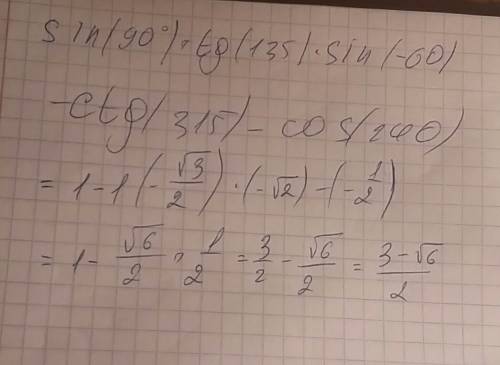 sin(90°)·tg(135)·sin(-60)
-ctg(315)-cos(240)
= 1-1(-√3/2)·(-√2)-(-1/2)
= 1-√6/2·1/2=3/2-√6/2=3-√6/2